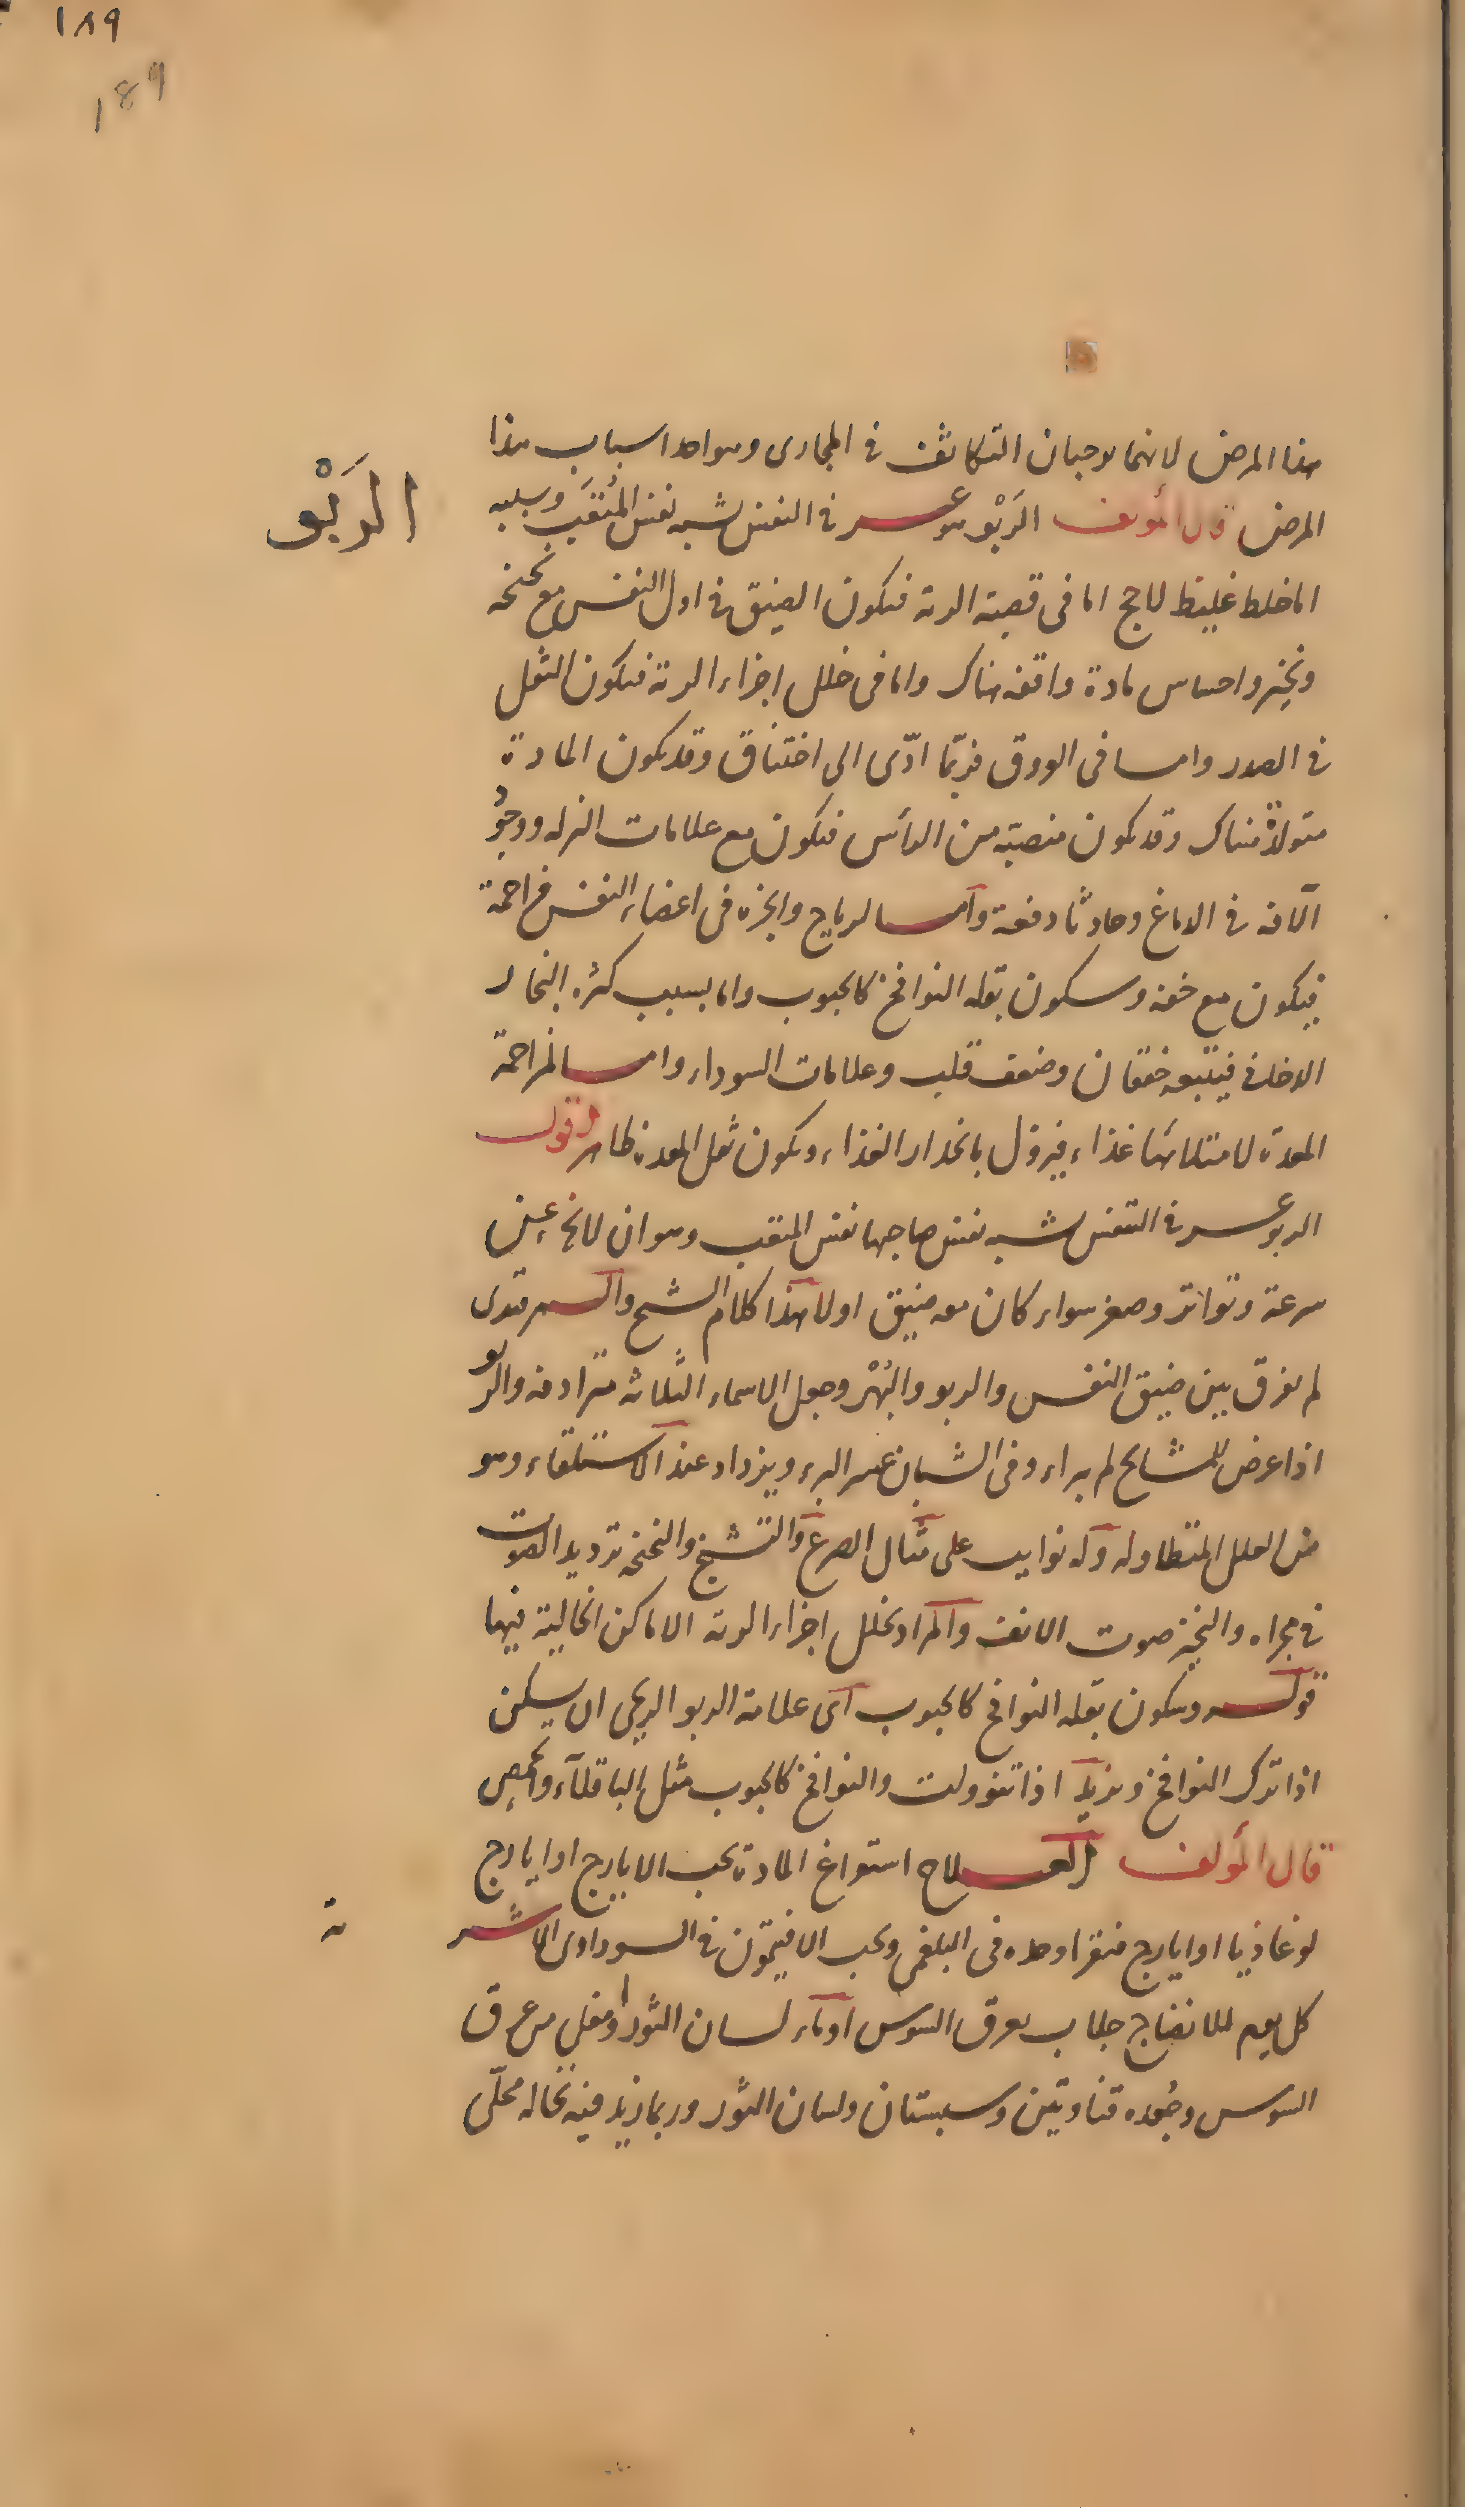 ١٨٩
189
هذا المرض لانهما يوجبان التكاثف فى المجارى وهو احد اسباب هذا
المرض قال المؤلف الرَبْو هو عسر فى النفس يشبه نفس المُتعَب وسببه
الرَبْو
اما خلط غليظ لاحج اما فى قصبة الرئة فيكون الضيق فى اول النفس مع نحنحة
ونخير واحساس مادة واقفة هناك واما فى خلل اجزاء الرئة فيكون الثقل
فى الصدر واما فى العروق فربّما ادّى الى اختناق وقد يكون المادة
متولدة هناك وقد يكون منصبّة من الرأس فيكون مع علامات النزلة ووجود
الآفة فى الدماغ وحادثا دفعة واما لرياح وابخرة فى اعضاء النفس مزاحمة
فيكون مع خفة وسكون بقلة النوافخ كالحبوب واما بسبب كثرة البخار
الدخانى فيتبعه خفقان وضعف قلب وعلامات السوداء واما لمزاحمة
المعدة لامتلائها غذاء فيزول بانحدار الغذاء ويكون ثقل المعدة ظاهرا اقول
الربو عسر فى التنفس يشبه نفس صاحبها نفس المتعب وهو ان لا يخ عن
سرعة وتواتر وصغر سواء كان معه ضيق اولا هذا كلام الشيخ والسمرقندى
لم يفرق بين ضيق النفس والربو والبُهْر وجعل الاسماء الثلاثة مترادفة والربو
اذا عرض للمشايخ لم يبراء وفى الشبان عسر البرء ويزداد عند الاستلقاء وهو
من العلل المتطاولة وله نوايب على مثال الصرع والتشنج والنحنحة ترديد الصوت
فى مجراه والنخير صوت الانف والمراد بخلل اجزاء الرئة الاماكن الخالية فيها
قوله وسكون بقلة النوافخ كالحبوب اى علامة الربو الريحى ان يسكن
اذا ترك النوافخ ويزيد اذا تنوولت والنوافخ كالحبوب مثل الباقلاء والحمص
قال المؤلف العلاج استفراغ المادة بحب الايارج او ايارج
لوغاذيا او ايارج فيقرا وحده فى البلغمى وبحب الافتيمون فى السوداوى الاشربة
كل يوم للانضاج جلاب بعرق السوس او ماء لسان الثور او مغلى من عرق
السوس وجُعده قناوتين وسبستان ولسان الثور وربما زيد فيه نخالة محلّى